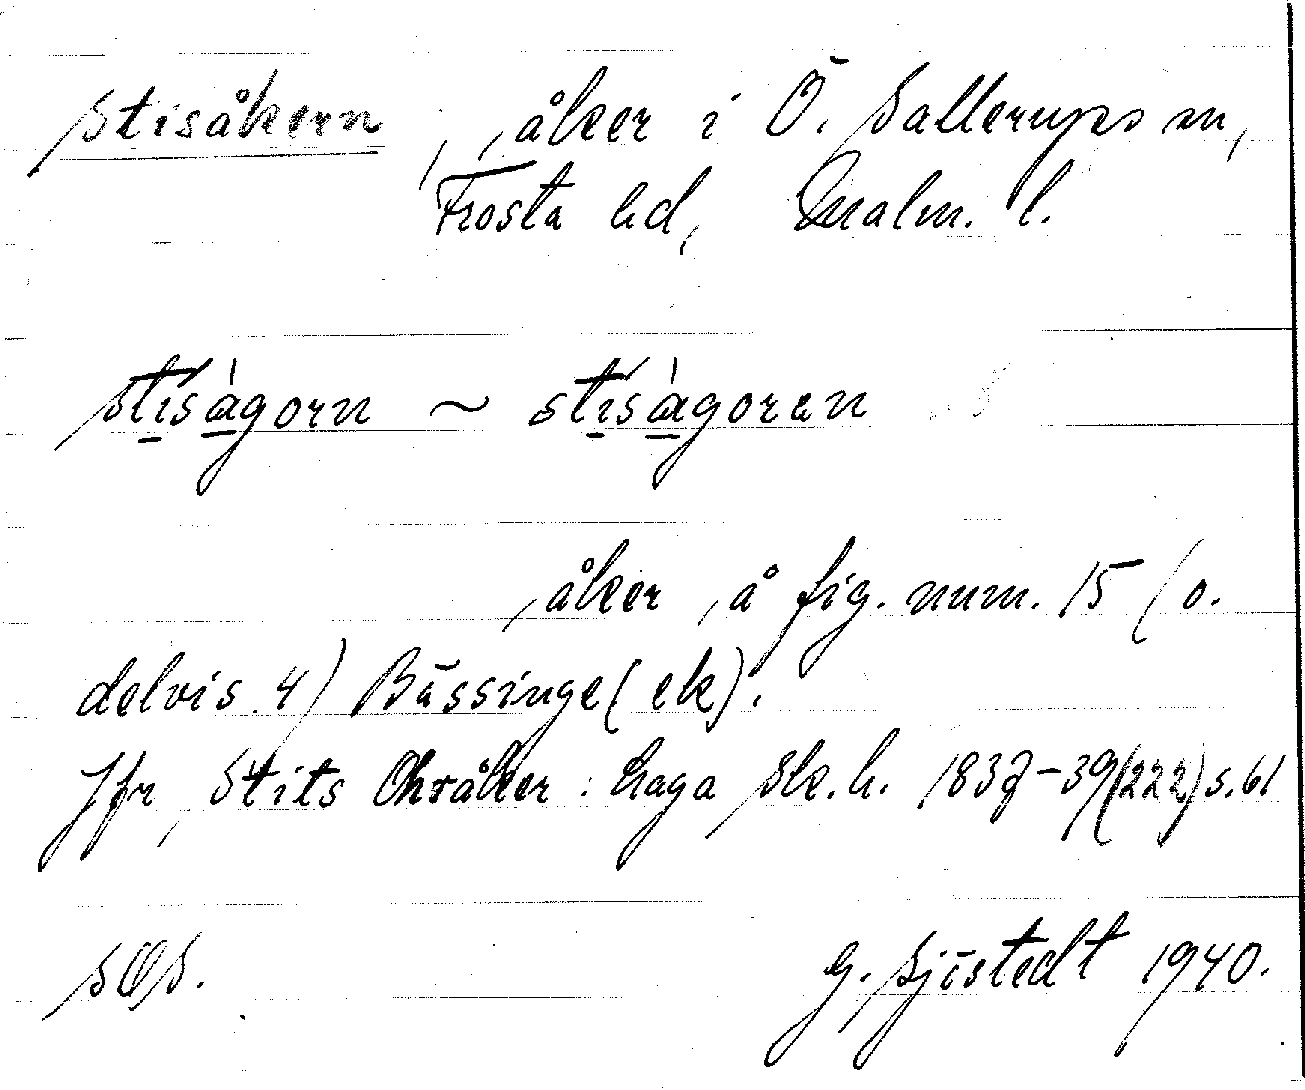 Stisåkern, åker i Ö. Sallerups sn,
Frosta hd, Malm. l.
stisàgorn ~ stisàgoran
åker å fig. num. 15 (o.
delvis 4) Bässinge (ek).
Jfr Stits åker: Laga sk.h. 1837-39 (222) s.61
SOS.
G. Sjöstedt 1940.